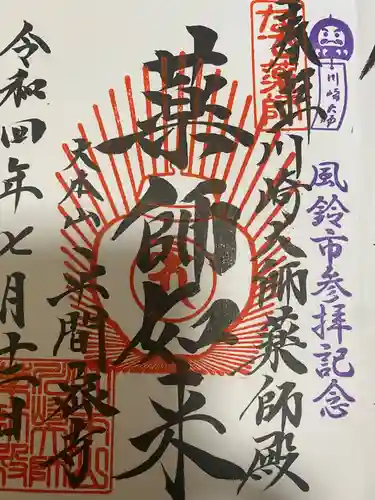 川崎大師
風鈴市参拝記念
なで薬師
奉拝川崎大師薬師殿
薬師如来
大本山平間寺
令和四年七月十六日